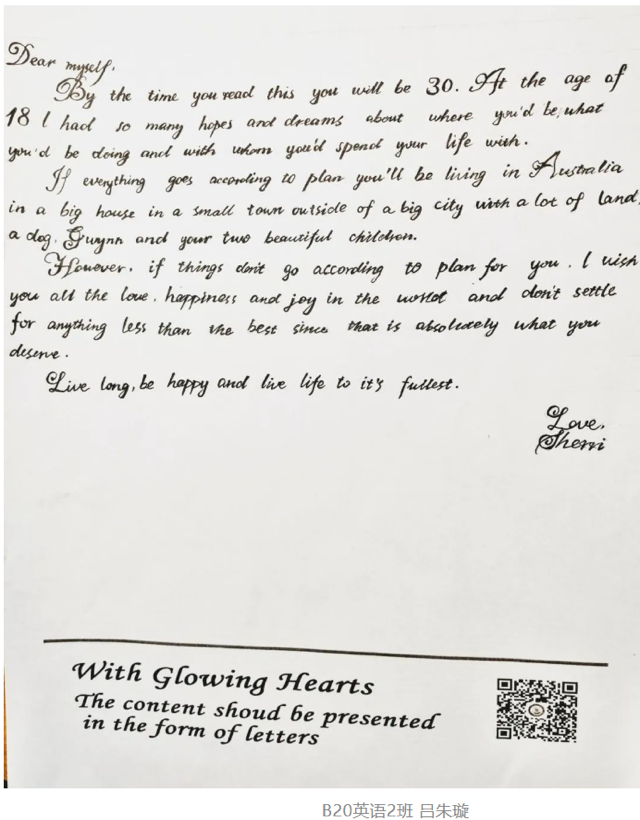 Dear myself,
By the time you read this you will be 30. At the age of
18 I had so many hopes and dreams about where you'd be, what
you'd be doing and with whom you'd spend your life with.
If everything goes according to plan you'll be living in Australia
in a big house in a small town outside of a big city with a lot of land,
a dog, Gwynn and your two beautiful children.
However, if things don't go according to plan for you, I wish
you all the love, happiness and joy in the world and don't settle
for anything less than the best since that is absolutely what you
deserve.
Live long, be happy and live life to it's fullest.
Love,
Sherri
With Glowing Hearts
The content shoud be presented
in the form of letters
B20英语2班 吕朱璇